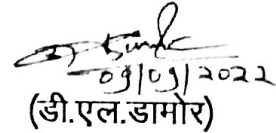 09/09/2022
(डी.एल.डामोर)